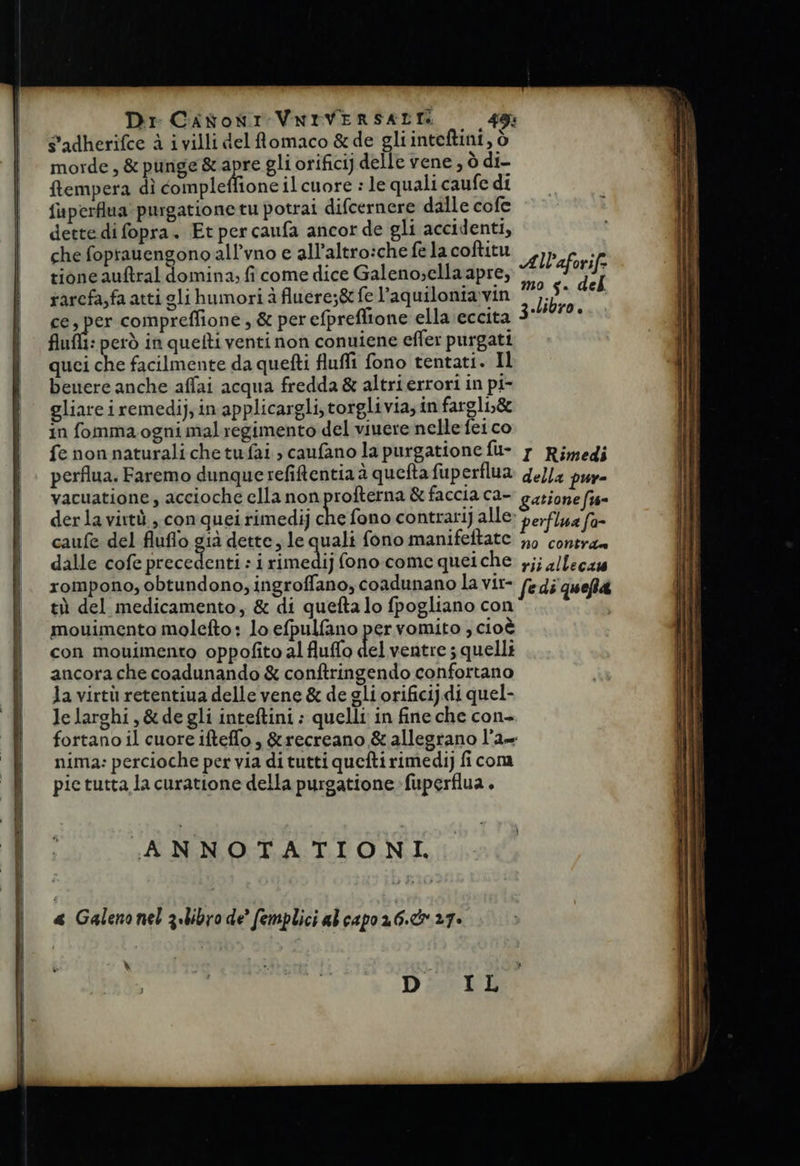 DI CANONI VNIVERSALI. 49
s'adherisce à i villi del stomaco & de gli intestini, ò
morde, & punge & apre gli orificij delle vene, ò di-
stempera di complessione il cuore : le quali cause di
superflua purgatione tu potrai discernere dalle cose
dette di sopra. Et per causa ancor de gli accidenti,
che soprauengono all'vno e all'altro: che se la costitu
tione austral domina, si come dice Galeno, ella apre,
All'aforis-
mo 5. del
3. libro.
rarefa, fa atti gli humori à fluere; & se l'aquilonia vin
ce, per compressione, & per espressione ella eccita
flussi: però in questi venti non conuiene esser purgati
quei che facilmente da questi flussi sono tentati. Il
beuere anche assai acqua fredda & altri errori in pi-
gliare i remedij, in applicargli, torgli via, in fargli, &
in somma ogni mal regimento del viuere nelle sei co
se non naturali che tu fai, causano la purgatione su-
perflua. Faremo dunque resistentia à questa superflua
vacuatione, accioche ella non prosterna & faccia ca-
der la virtù, con quei rimedij che sono contrarij alle
cause del flusso già dette, le quali sono manifestate
dalle cose precedenti : i rimedij sono come quei che
rompono, obtundono, ingrossano, coadunano la vir-
r Rimedi
della pur-
gatione su-
perflua so-
no contra-
rij alle cau
se di questa
tù del medicamento, & di questa lo spogliano con
mouimento molesto: lo espulsano per vomito, cioè
con mouimento opposito al flusso del ventre; quelli
ancora che coadunando & constringendo confortano
la virtù retentiua delle vene & de gli orificij di quel-
le larghi, & de gli intestini : quelli in fine che con-
fortano il cuore istesso, & recreano & allegrano l'a-
nima: percioche per via di tutti questi rimedij si com
pie tutta la curatione della purgatione superflua.
ANNOTATIONI.
a Galeno nel 3. libro de' semplici al capo 26. & 27.
D IL